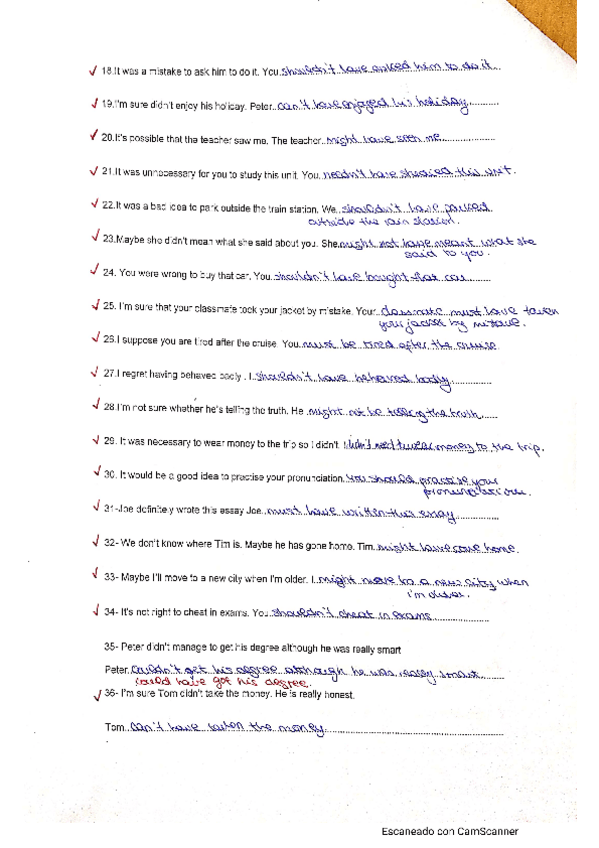 ✓ 18.It was a mistake to ask him to do it. You shouldn't have asked him to do it
✓ 19.I'm sure didn't enjoy his holicay. Peter can't have enjoyed his holiday
✓ 20.It's possible that the teacher saw me. The teacher might have seen me
✓ 21.It was unnecessary for you to study this unit. You needn't have studied this unit.
✓ 22.It was a bad idea to park outside the train station. We shouldn't have parked
outside the train station.
✓ 23.Maybe she didn't mean what she said about you. She might not have meant what she
said to you.
✓ 24. You were wrong to buy that car. You shouldn't have bought that car
✓ 25. I'm sure that your classmate took your jacket by mistake. Your classmate must have taken
your jacket by mistake.
✓ 26.I suppose you are tired after the cruise. You must be tired after the cruise
✓ 27.I regret having behaved badly . I shouldn't have behaved badly
✓ 28.I'm not sure whether he's telling the truth. He might not be telling the truth
✓ 29. It was necessary to wear money to the trip so I didn't. I didn't need to wear money to the trip.
✓ 30. It would be a good idea to practise your pronunciation. You should practise your
pronunciation.
✓ 31-Joe definitely wrote this essay Joe must have written this essay
✓ 32- We don't know where Tim is. Maybe he has gone home. Tim might have gone home.
✓ 33- Maybe I'll move to a new city when I'm older. I might move to a new city when
i'm older.
✓ 34- It's not right to cheat in exams. You shouldn't cheat in exams
35- Peter didn't manage to get his degree although he was really smart
Peter couldn't get his degree although he was really smart
could have got his degree.
✓ 36- I'm sure Tom didn't take the money. He is really honest.
Tom can't have taken the money
Escaneado con CamScanner